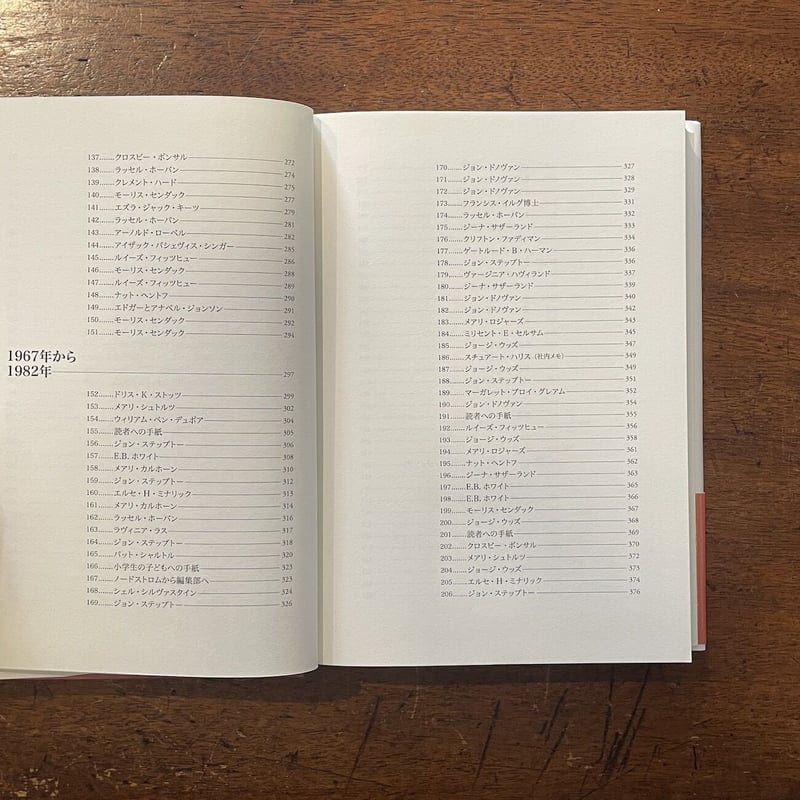 137……クロスビー・ボンサル 272
138……ラッセル・ホーバン 274
139……クレメント・ハード 275
140……モーリス・センダック 277
141……エズラ・ジャック・キーツ 279
142……ラッセル・ホーバン 281
143……アーノルド・ローベル 282
144……アイザック・バシェヴィス・シンガー 285
145……ルイーズ・フィッツヒュー 286
146……モーリス・センダック 288
147……ルイーズ・フィッツヒュー 289
148……ナット・ヘントフ 290
149……エドガーとアナベル・ジョンソン 291
150……モーリス・センダック 292
151……モーリス・センダック 294
1967年から
1982年 297
152……ドリス・K・ストッツ 299
153……メアリ・シュトルツ 302
154……ウィリアム・ペン・デュボア 304
155……読者への手紙 305
156……ジョン・ステップトー 306
157……E.B.ホワイト 308
158……メアリ・カルホーン 310
159……ジョン・ステップトー 312
160……エルセ・H・ミナリック 313
161……メアリ・カルホーン 314
162……ラッセル・ホーバン 316
163……ラヴィニア・ラス 317
164……ジョン・ステップトー 318
165……パット・シャルトル 320
166……小学生の子どもへの手紙 323
167……ノードストロムから編集部へ 323
168……シェル・シルヴァスタイン 324
169……ジョン・ステップトー 326
170……ジョン・ドノヴァン 327
171……ジョン・ドノヴァン 328
172……ジョン・ドノヴァン 329
173……フランシス・イルグ博士 331
174……ラッセル・ホーバン 332
175……ジーナ・サザーランド 333
176……クリフトン・ファディマン 334
177……ゲートルード・B・ハーマン 336
178……ジョン・ステップトー 336
179……ヴァージニア・ハヴィランド 337
180……ジーナ・サザーランド 339
181……ジョン・ドノヴァン 340
182……ジョン・ドノヴァン 342
183……メアリ・ロジャーズ 343
184……ミリセント・E・セルサム 345
185……ジョージ・ウッズ 347
186……スチュアート・ハリス（社内メモ） 349
187……ジョージ・ウッズ 349
188……ジョン・ステップトー 351
189……マーガレット・ブロイ・グレアム 352
190……ジョン・ドノヴァン 354
191……読者への手紙 355
192……ルイーズ・フィッツヒュー 356
193……ジョージ・ウッズ 358
194……メアリ・ロジャーズ 361
195……ナット・ヘントフ 362
196……ジーナ・サザーランド 363
197……E.B.ホワイト 365
198……E.B.ホワイト 366
199……モーリス・センダック 367
200……ジョージ・ウッズ 368
201……読者への手紙 369
202……クロスビー・ボンサル 370
203……メアリ・シュトルツ 372
204……ジョージ・ウッズ 373
205……エルセ・H・ミナリック 374
206……ジョン・ステップトー 376